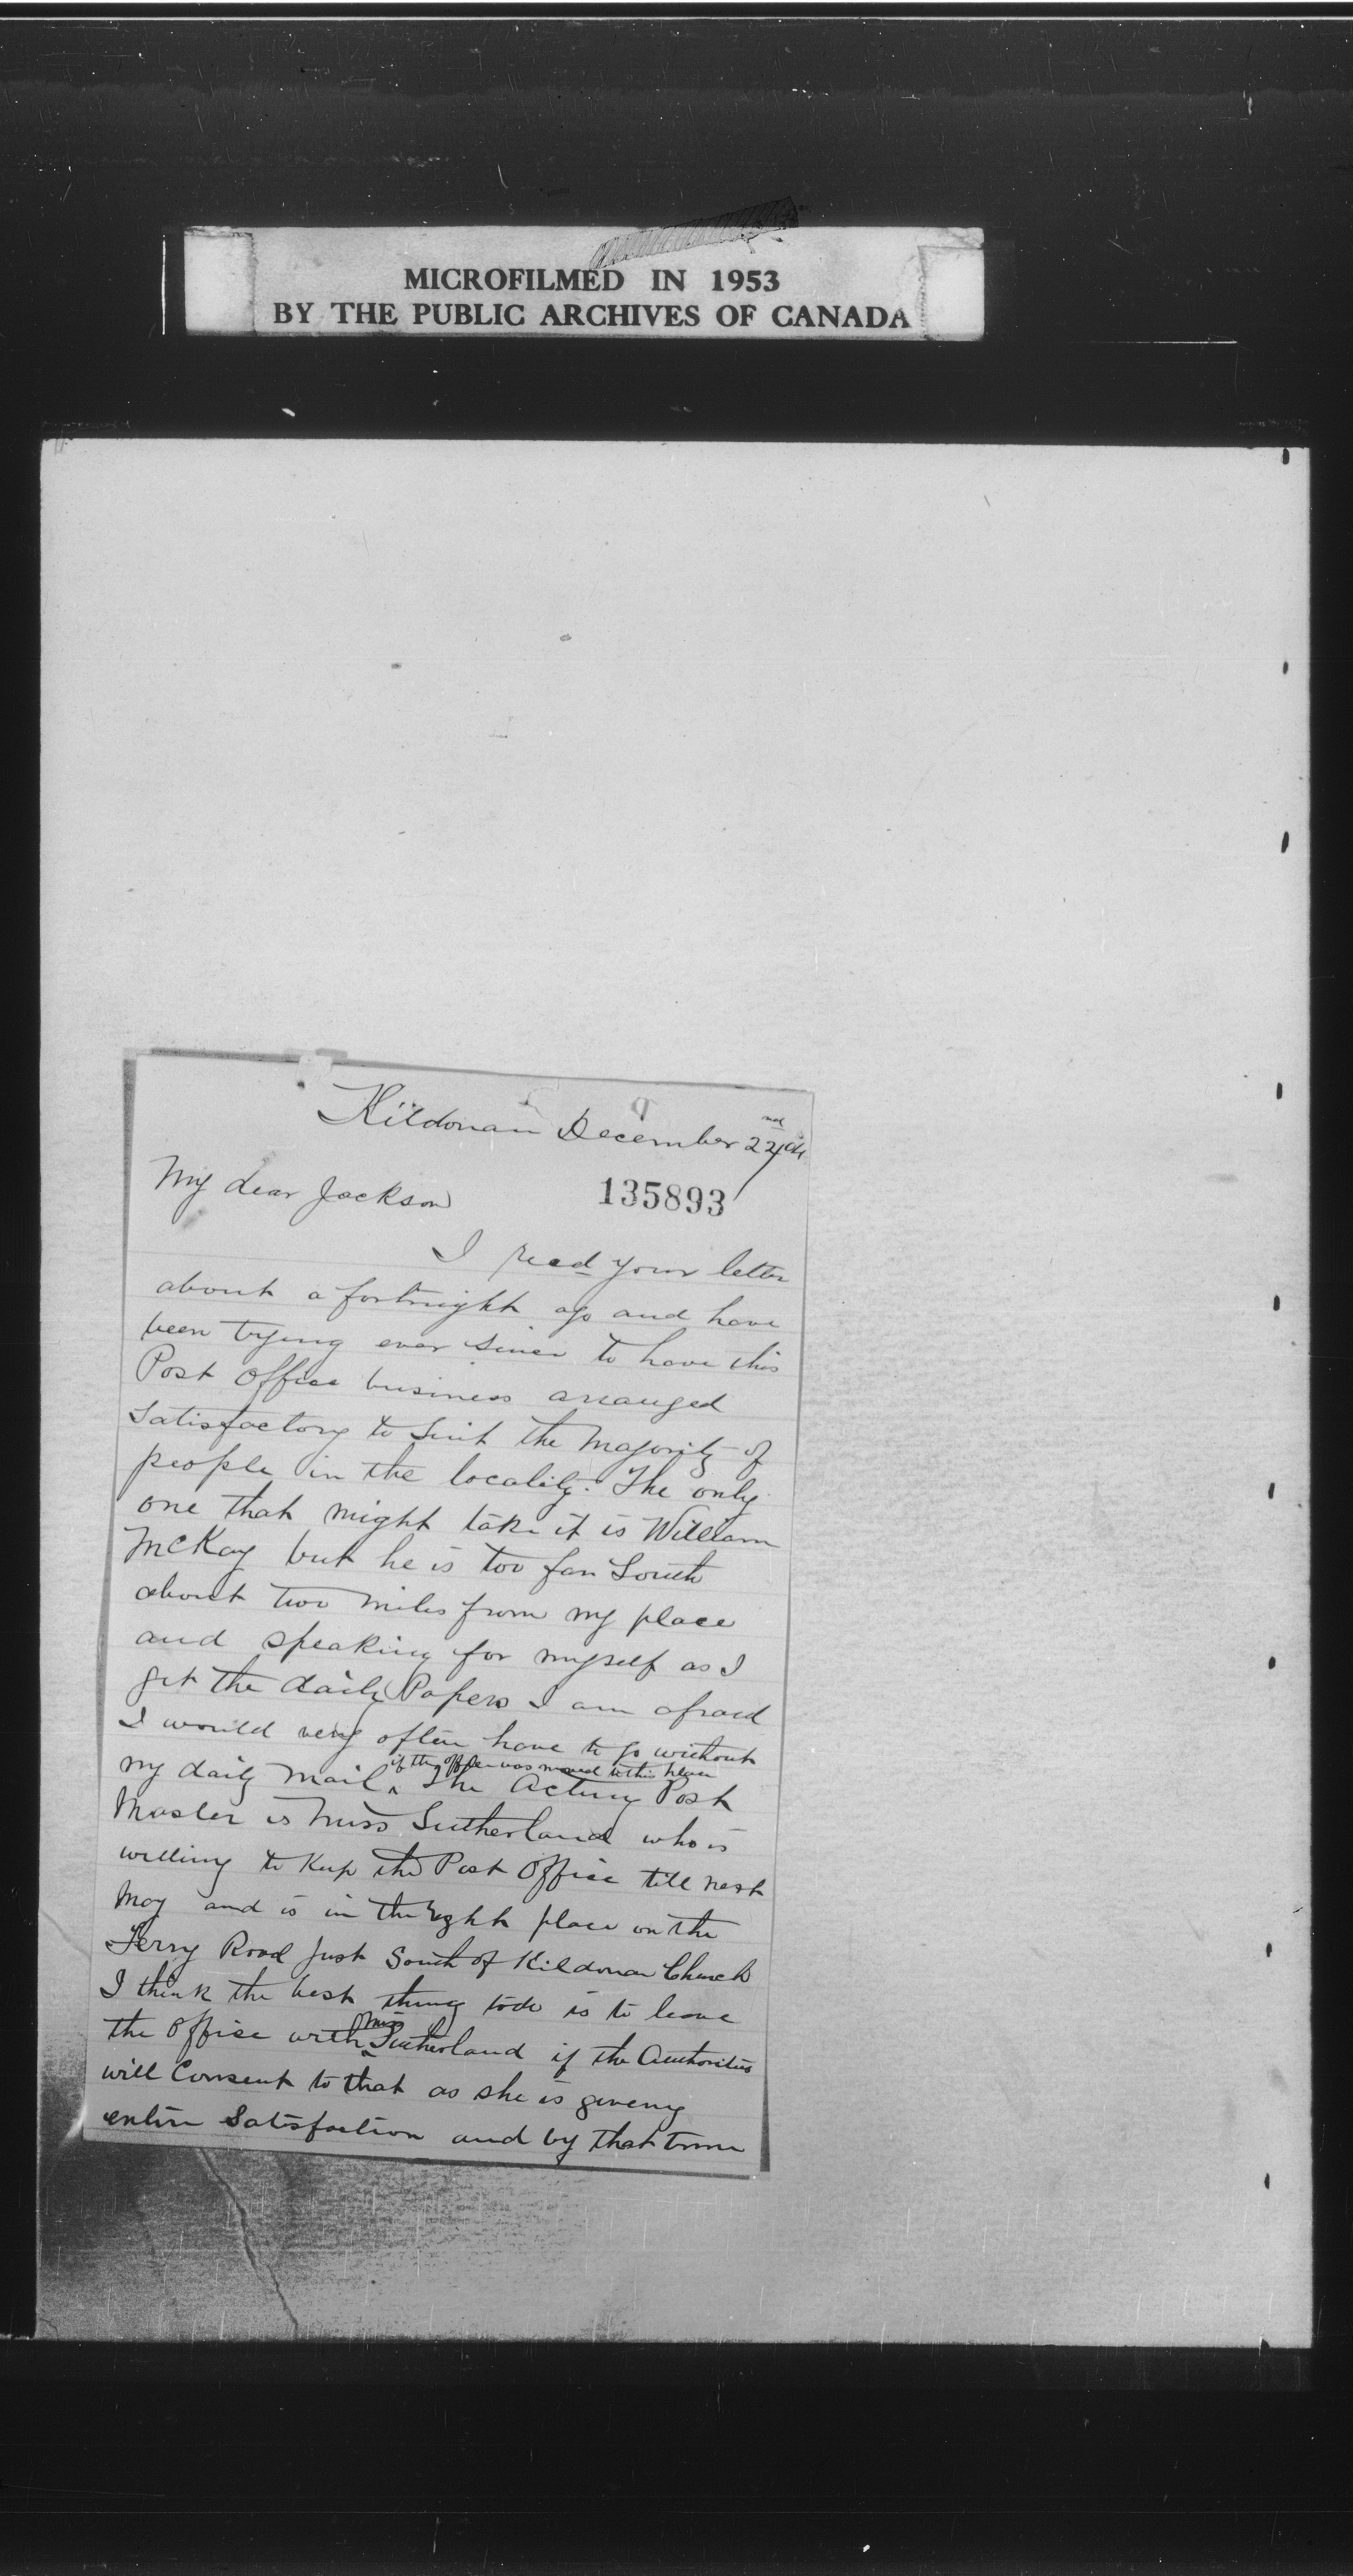 MICROFILMED IN 1953
BY THE PUBLIC ARCHIVES OF CANADA
Kildonan December 22nd/04
135893
My dear Jackson
I recd your letter
about a fortnight ago and have
been trying ever since to have this
Post Office business arranged
satisfactory to suit the majority of
people in the locality. The only
one that might take it is William
McKay but he is too far South
about two miles from my place
and speaking for myself as I
get the daily Papers I am afraid
I would very often have to go without
if the office was moved to his place
my daily mail ^ The Acting Post
Master is Miss Sutherland who is
willing to keep the Post Office till next
May and is in the right place on the
Ferry Road just South of Kildonan Church
I think the best thing to do is to leave
the office with ^ Miss Sutherland if the Authorities
will Consent to that as she is giveing
entire Satisfaction and by that time